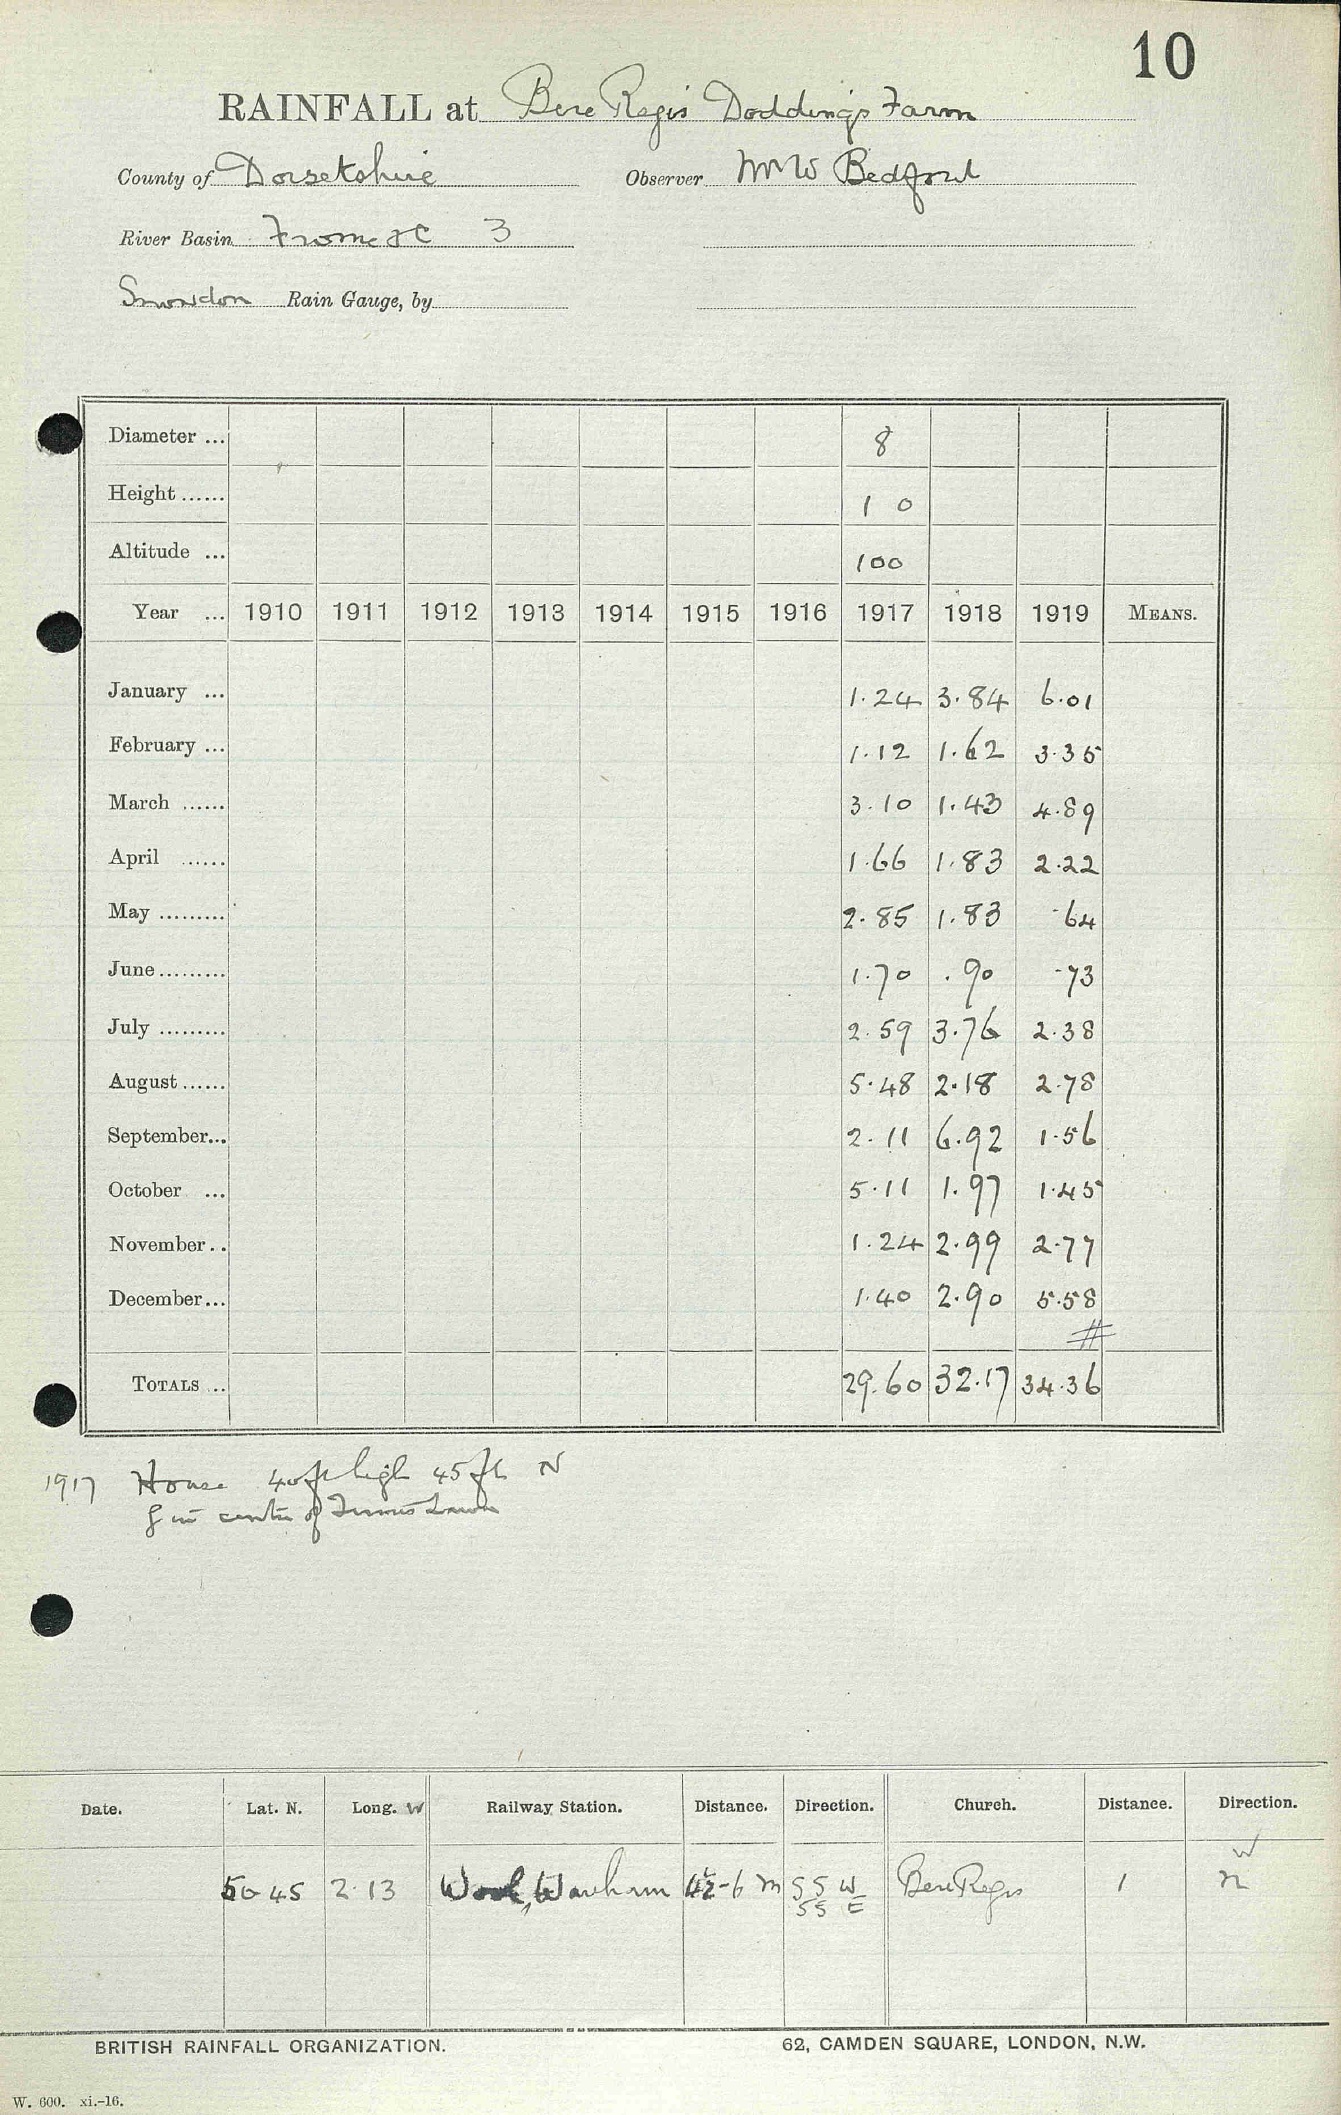 10
RAINFALL at Bere Regis Doddings Farm
County of Dorsetshire Observer Mr W Bedford
River Basin Frome &c 3
Snowdon Rain Gauge, by
Diameter ... 8
Height ...... 1 0
Altitude ... 100
Year ... 1910 1911 1912 1913 1914 1915 1916 1917 1918 1919 MEANS.
January ... 1.24 3.84 6.01
February ... 1.12 1.62 3.35
March ...... 3.10 1.43 4.89
April ...... 1.66 1.83 2.22
May ......... 2.85 1.83 .64
June ......... 1.70 .90 .73
July ......... 2.59 3.76 2.38
August ...... 5.48 2.18 2.78
September... 2.11 6.92 1.56
October ... 5.11 1.97 1.45
November .. 1.24 2.99 2.77
December ... 1.40 2.90 5.58
#
TOTALS ... 29.60 32.17 34.36
1917 House 40ft high 45 ft N
G in centre of Tennis Lawn
Date. Lat. N. Long. W Railway Station. Distance. Direction. Church. Distance. Direction.
W
50 45 2.13 Wool, Wareham -6 m SSW Bere Regis 1 N
SSE
BRITISH RAINFALL ORGANIZATION. 62, CAMDEN SQUARE, LONDON, N.W.
W. 600. xi.-16.